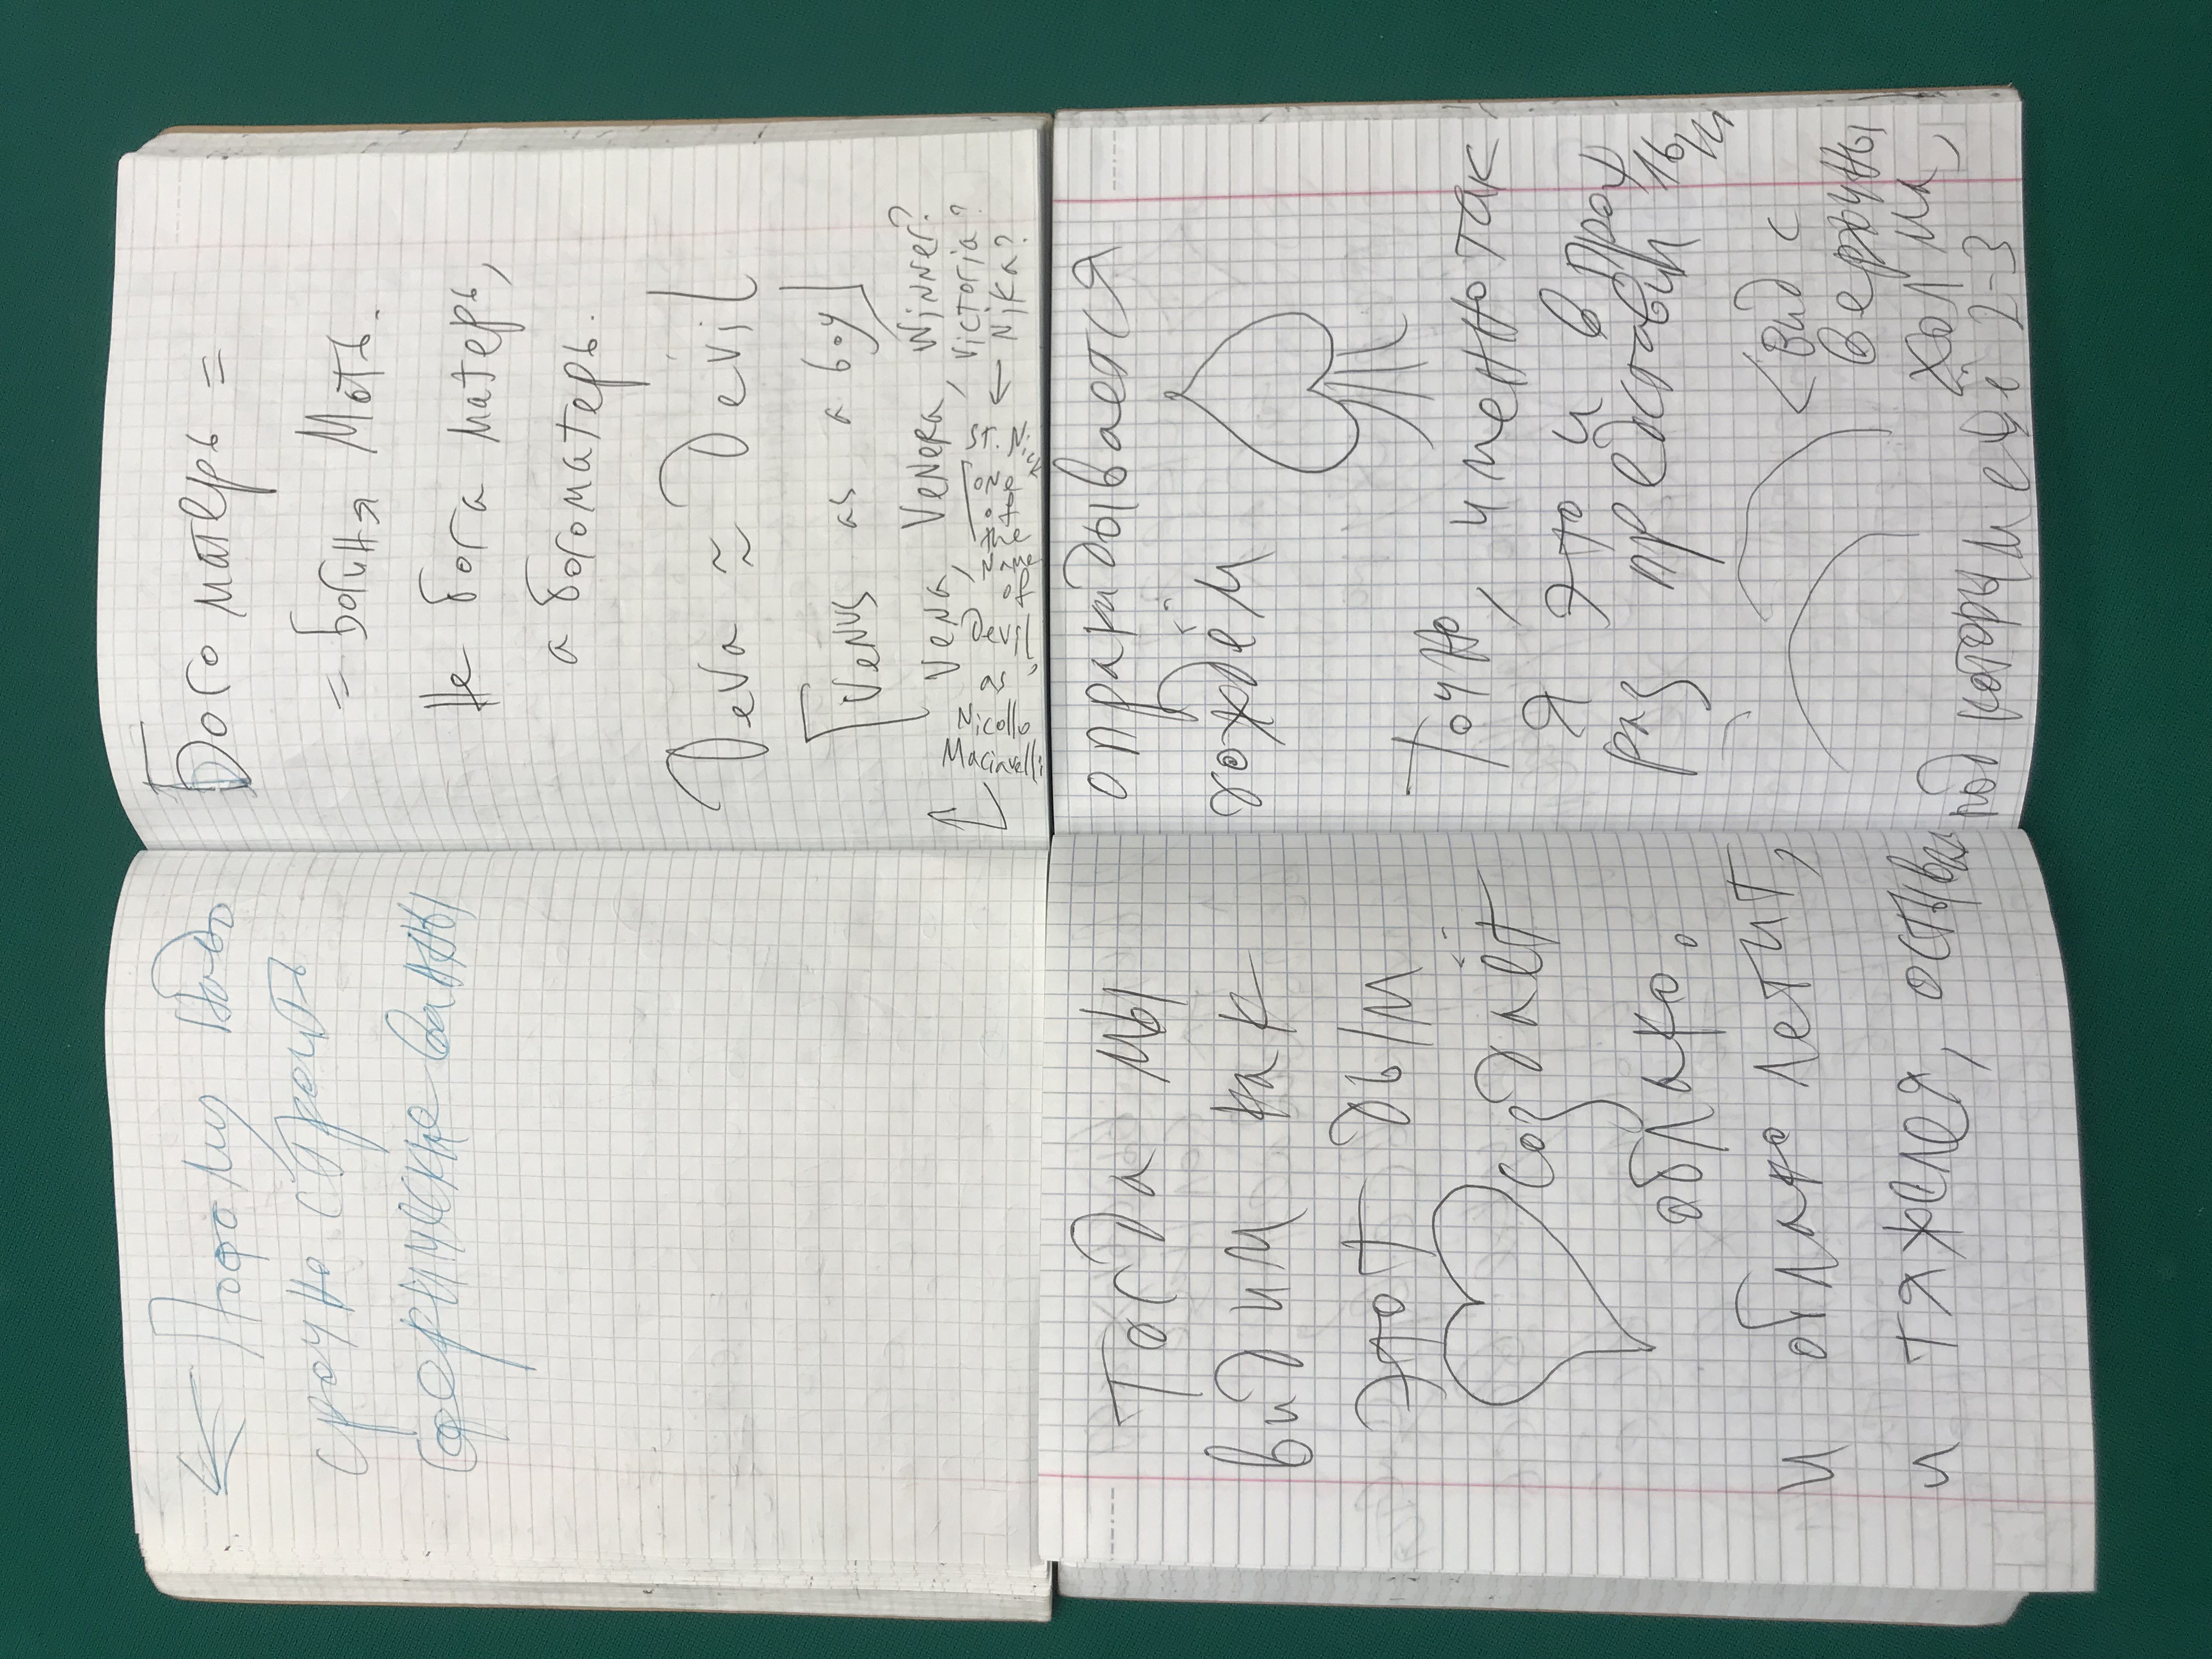 ← Потому надо
срочно строить
сферические ванны
Богоматерь =
= Богиня Мать.
Не бога матерь,
а богоматерь.
Deva ≈ Devil
[Venus as a boy]
Vena, Venera, Winner?
Victoria?
← Nika?
St. Nick
[one
of
the
name
of
Devil
as,
Nicollo
Macinvelli
Тогда мы
видим как
этот дым
создаёт
облако.
И облако летит,
и тяжелея, остывая
опракидывается
дождём
Точно, именно так
я это и в прошлый
раз представил
<вид с
вершины
холма,
под которым ещё 2-3